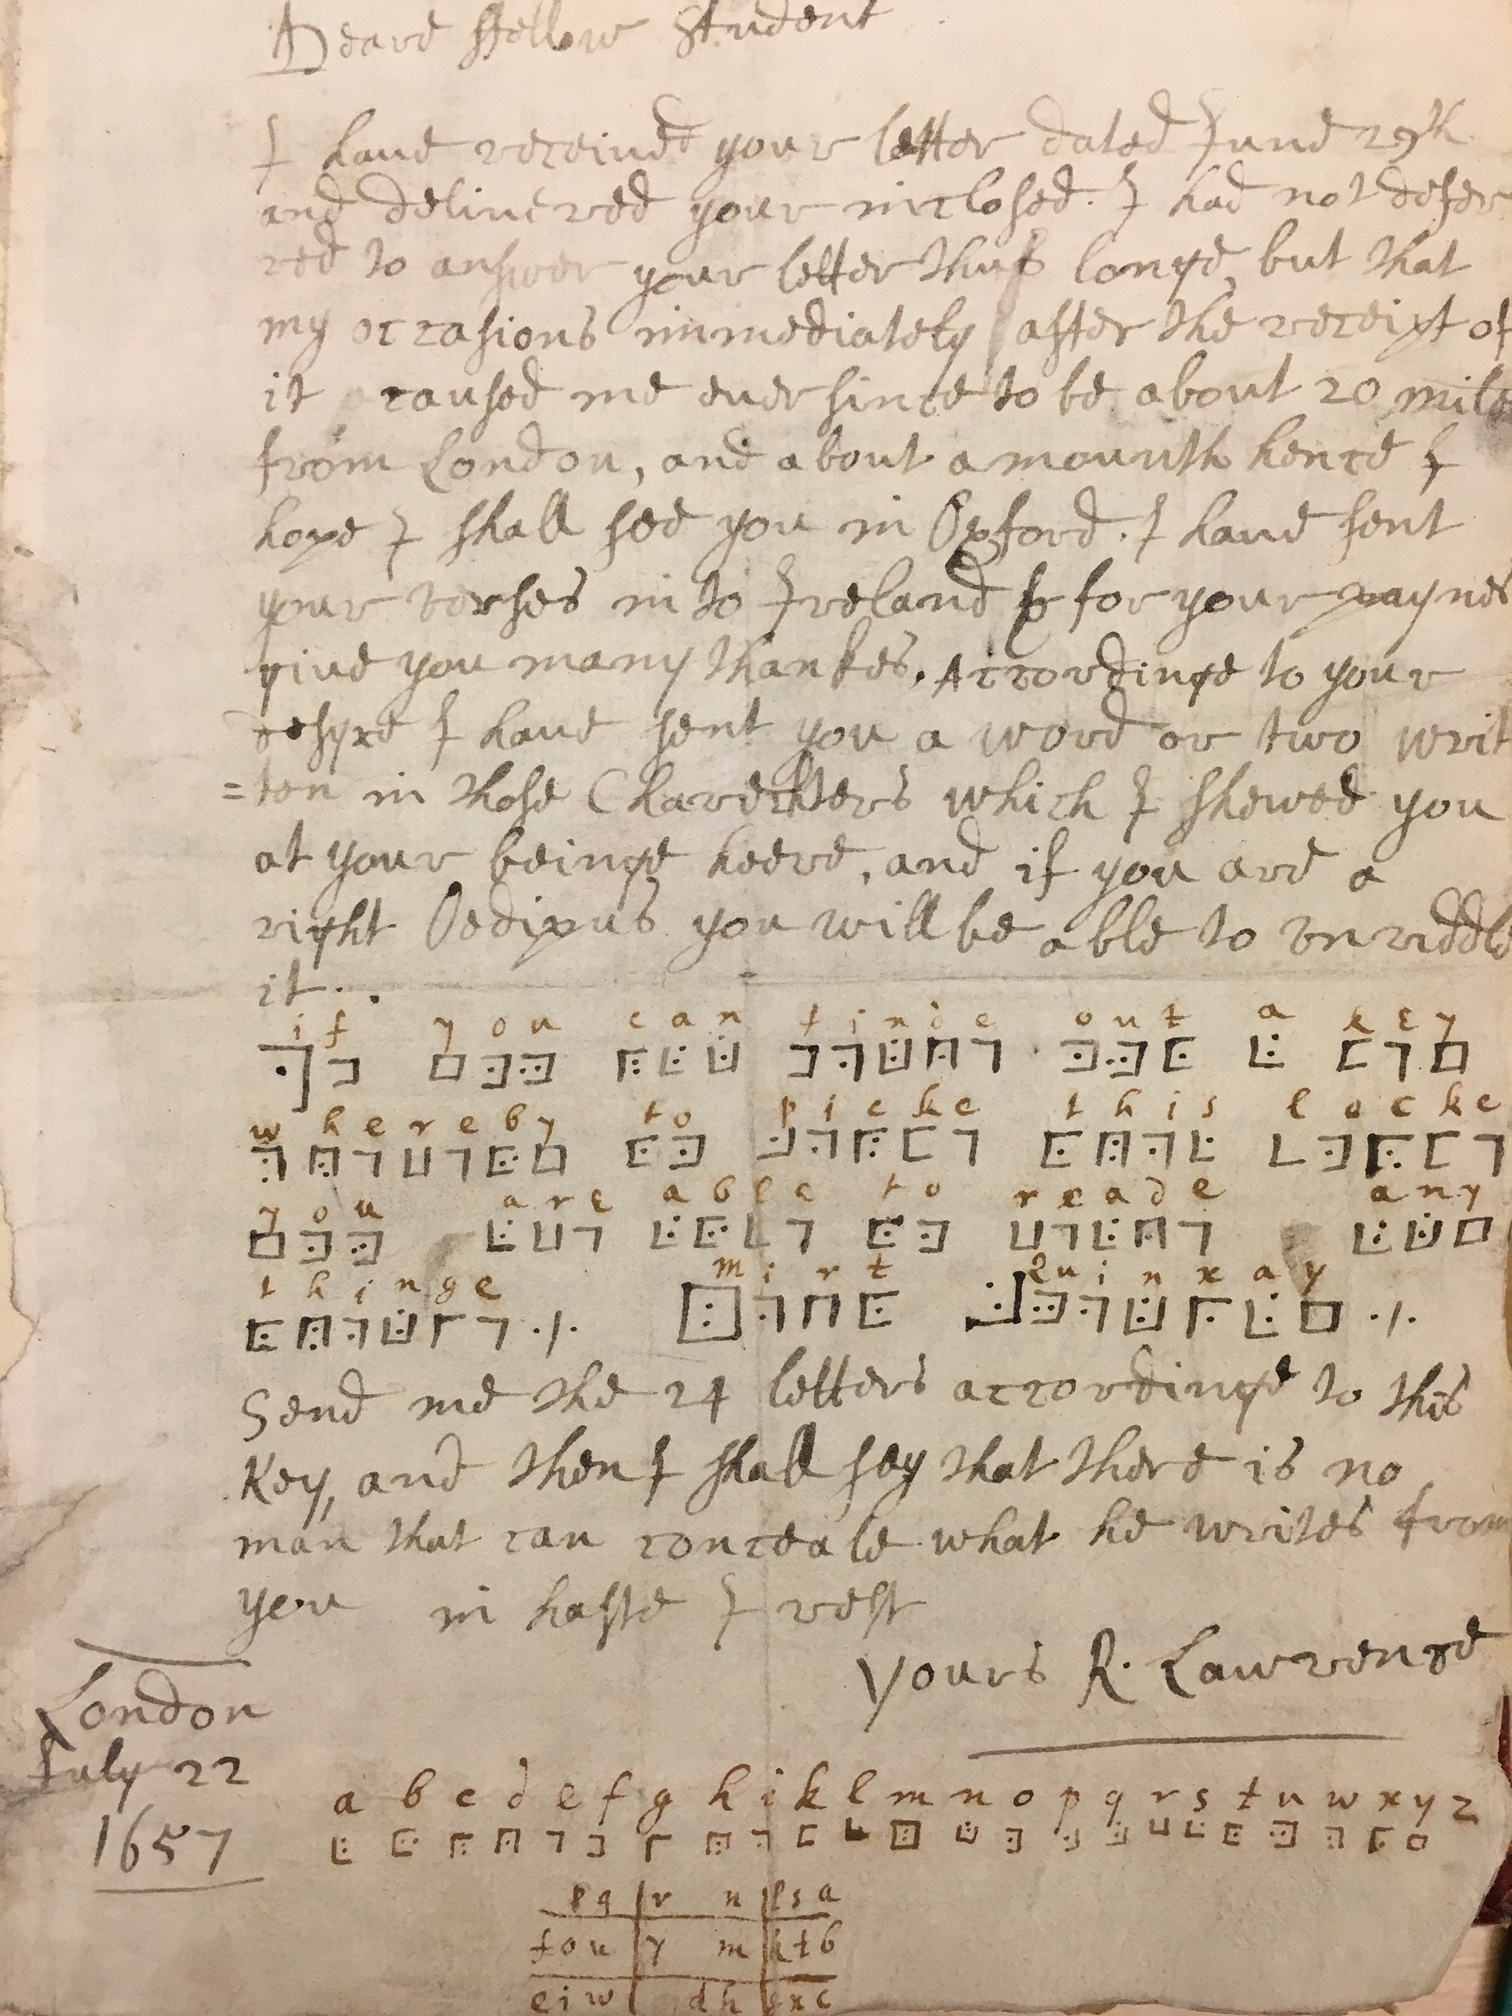 Deare ffellow Student
I haue receiued your letter dated June 29th
and deliuered your inclosed. I had not defer
red to answer your letter thus longe, but that
my occasions immediately after the receipt of
it caused me euer since to be about 20 mile
from London, and about a mounth hence I
hope I shall see you in Oxford. I haue sent
your verses in to Ireland & for your paynes
giue you many thankes. Accordinge to your
desyre I haue sent you a word or two writ
=ten in those Charechters which I shewed you
at your beinge heere, and if you are a
right Oedipus you will be able to vnriddle
it..
if you can finde out a key
whereby to picke this locke
you are able to reade any
thinge mirt Quinxay
Send me the 24 letters accordinge to this
Key, and then I shall say that there is no
man that can conceale what he writes from
you in haste I rest
Yours R. Lawrence
London
July 22
1657
a b c d e f g h i k l m n o p q r s t u w x y z
p q r n l s a
f o u y m k t b
e i w d h g x c